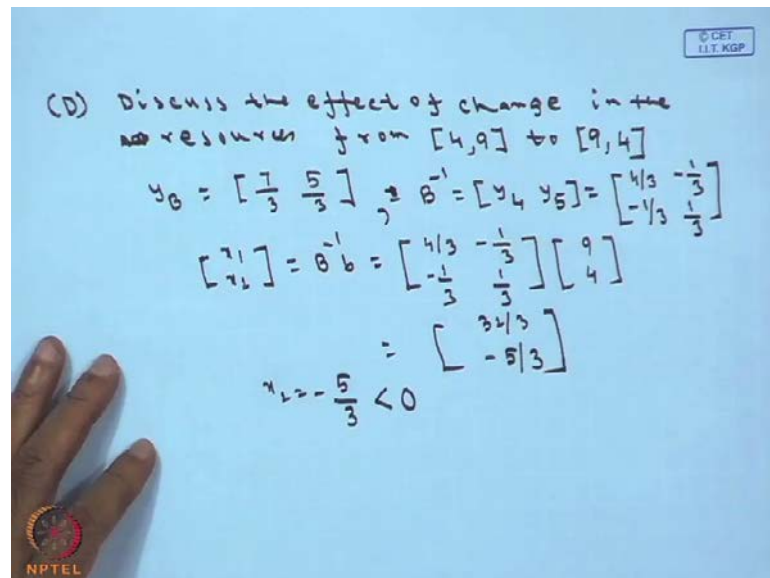 © CET
I.I.T. KGP
(D) Discuss the effect of change in the
resources from [4,9] to [9,4]
y_B = [7/3 5/3], B^-1 = [y4 y5] = [4/3 -1/3; -1/3 1/3]
[x1; x2] = B^-1 b = [4/3 -1/3; -1/3 1/3] [9; 4]
= [32/3; -5/3]
x2 = -5/3 < 0
NPTEL